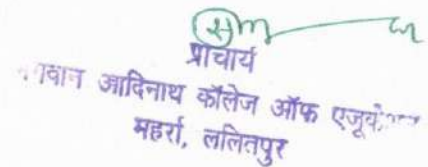 प्राचार्य
भगवान आदिनाथ कॉलेज ऑफ
महर्रा, ललितपुर